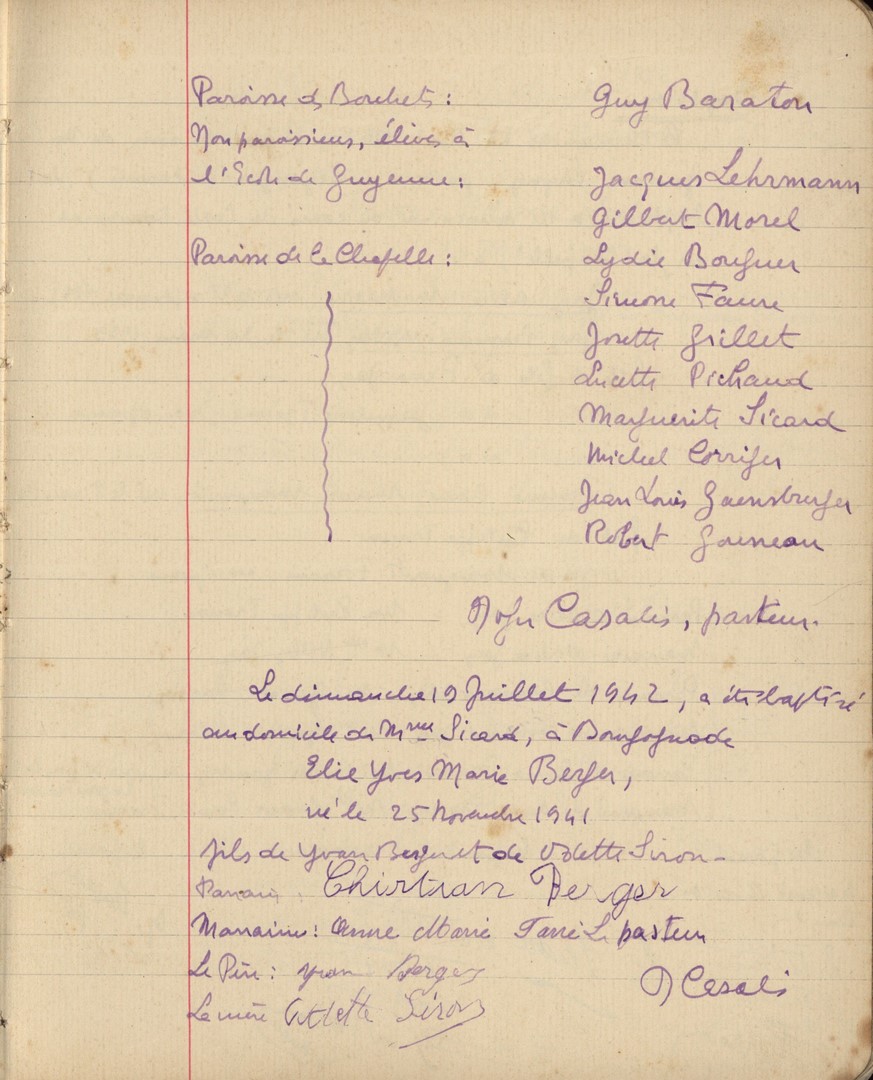 Paroisse des Bouchets : Guy Baraton
Non paroissiens, élèves à
l'Ecole de Guyenne : Jacques Lehrmann
Gilbert Morel
Paroisse de la Chapelle : Lydie Bouguer
Simone Faure
Josette Grillet
Lucette Pichaud
Marguerite Sicard
Michel Corriger
Jean Louis Gaensburger
Robert Gousseau
Roger Casalis, pasteur.
Le dimanche 19 Juillet 1942, a été baptisé
au domicile de Mme Sicard, à Bourgognade
Elie Yves Marie Berger,
né le 25 Novembre 1941
fils de Yvan Berger et de Odette Siron -
Parrain : Christian Berger
Marraine : Anne Marie Le pasteur
Le Père : Yvan Berger
R Casalis
La mère Odette Siron